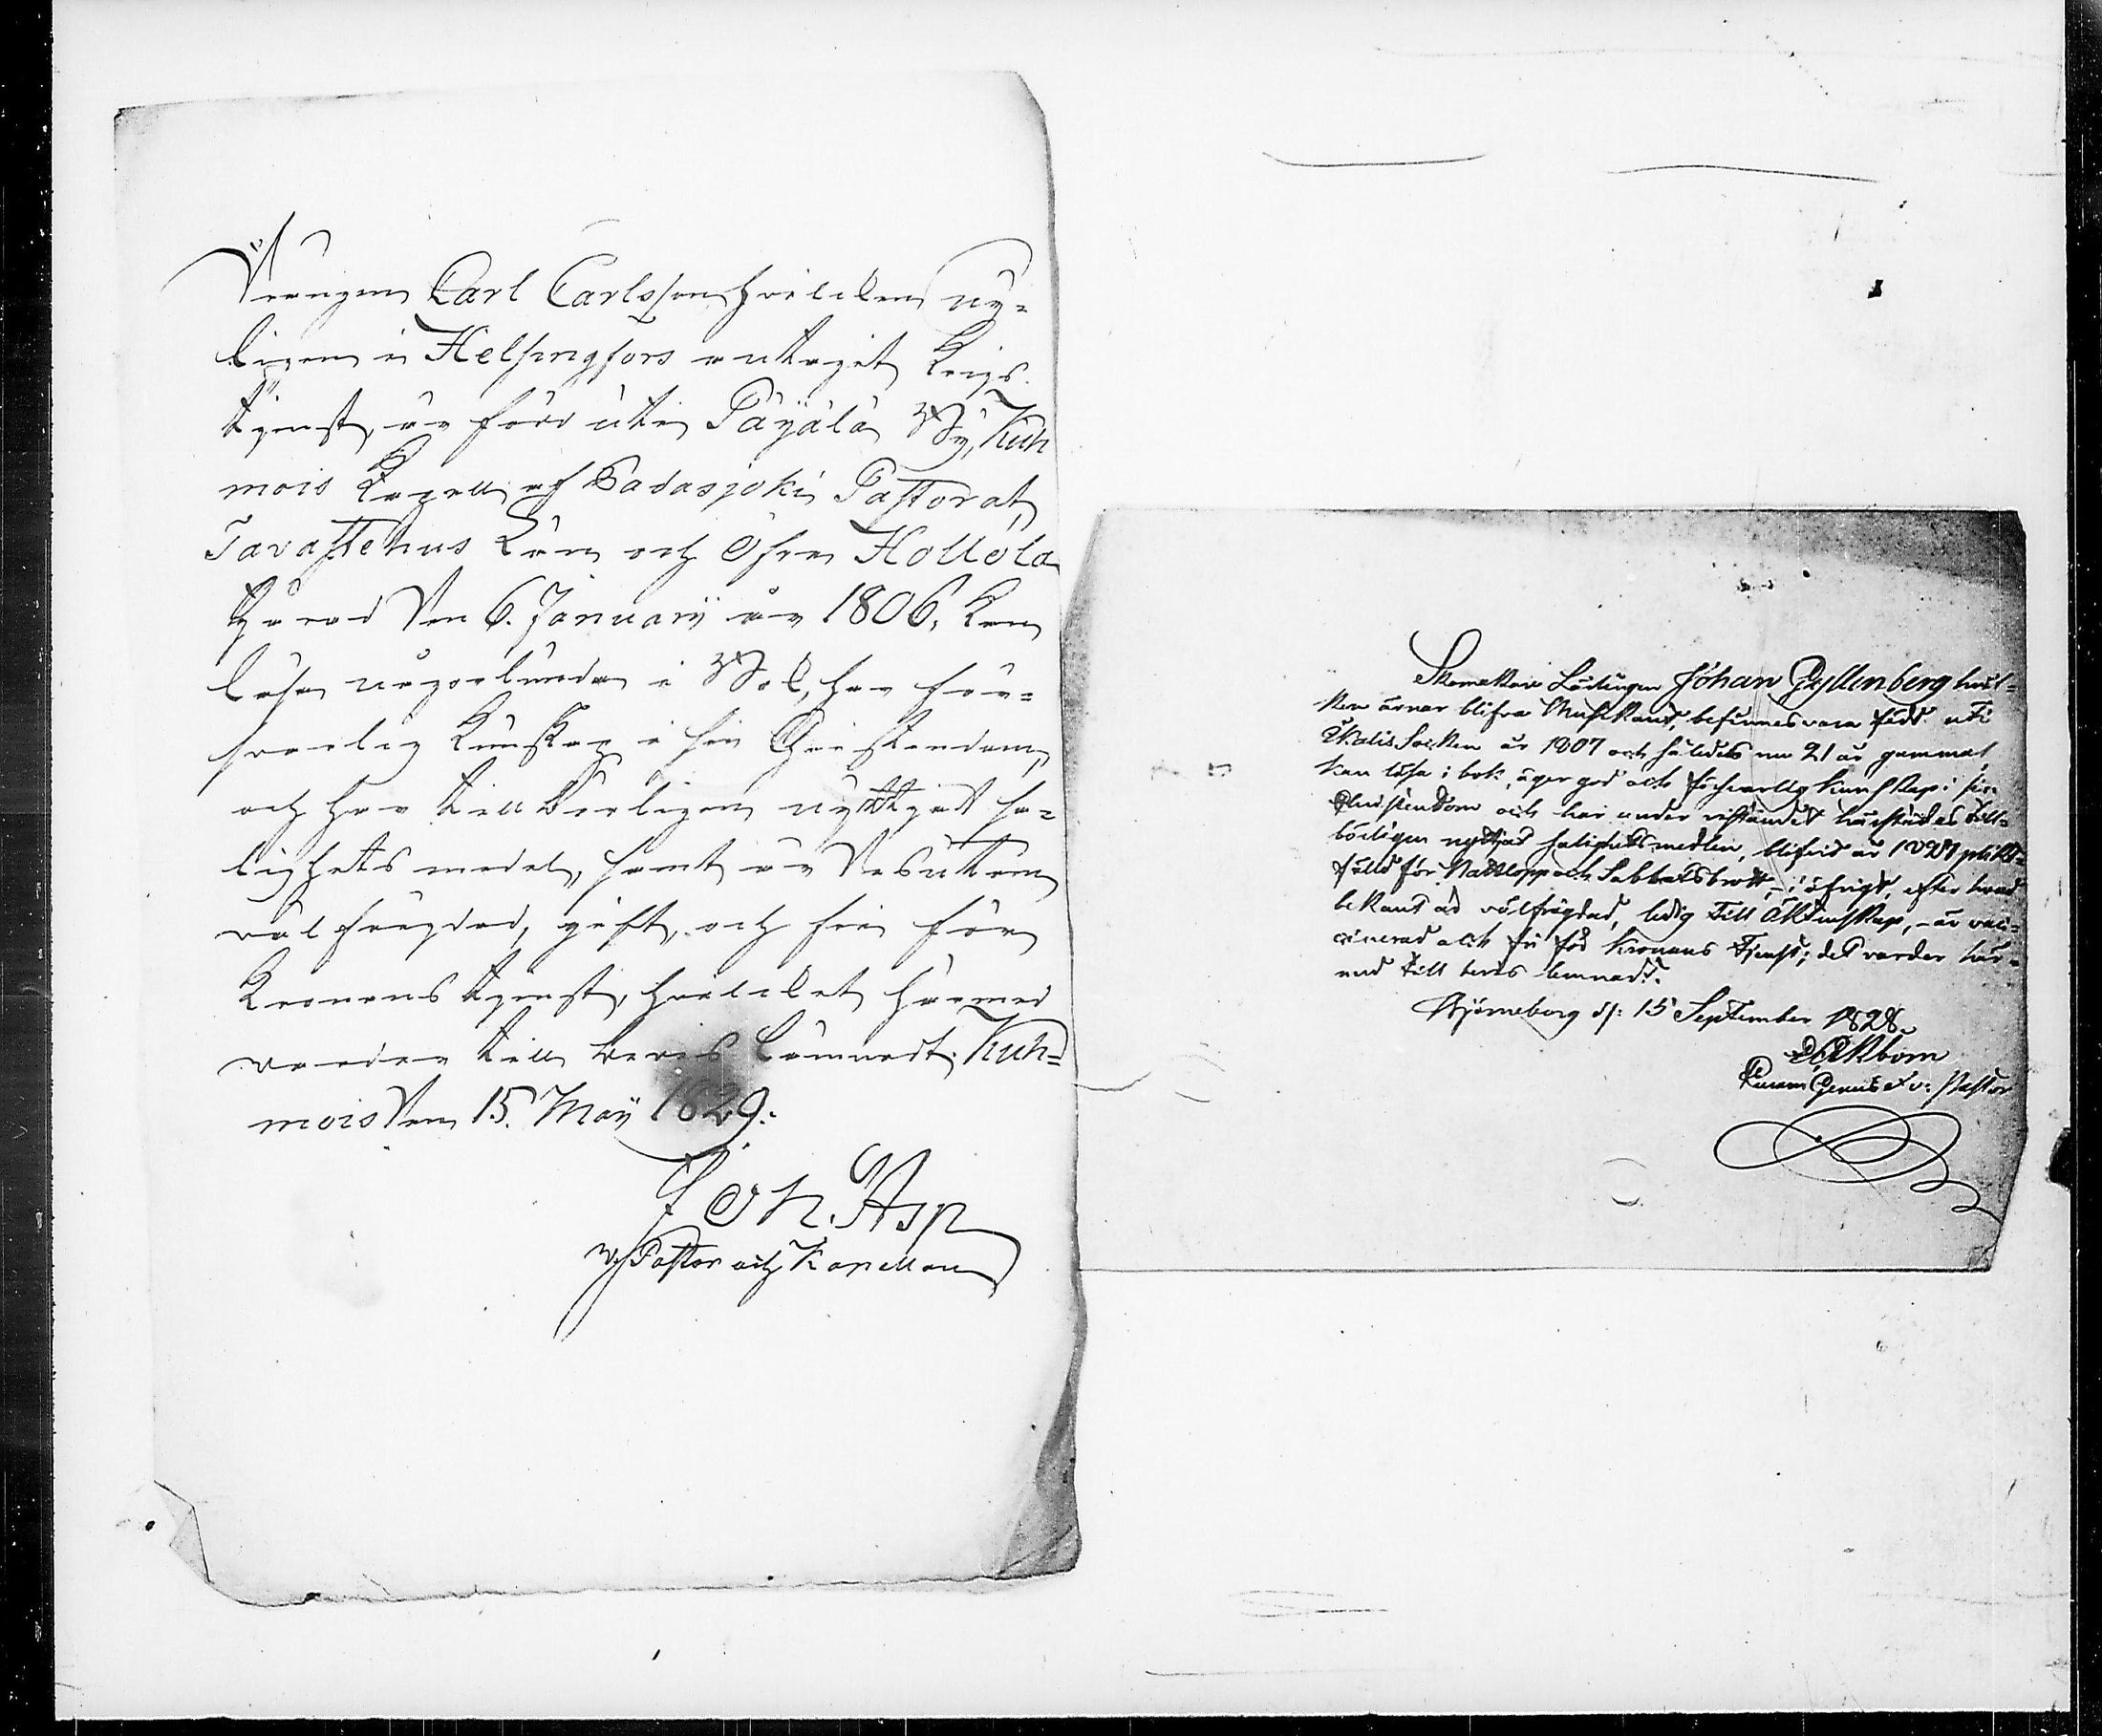 Drängen Carl Carlsson hvilcken ny=
ligen i Helsingfors antagit Krigs
tjenst, är född uti Päyälä By, Kuh
mois Capell af Padasjoki Pastorat,
Tavastehus Län och Öfre Hollola
Härad den 6. Januarii år 1806, kan
läsa någorlunda i Bok, har för=
svarlig kunskap i sin Christendom,
och har tillbörligen nyttjat sa=
lighets medel, samt är desutom
välfrägdad, gift, och fri för
Kronans tjenst, hvilcket härmed
warder till bevis lämnadt. Kuh=
mois den 15. Maij 1829.
Joh. Asp
v. Pastor och Kapellan
Skomakare Lärlingen Johan Gyllenberg hvil=
ken ärnar blifva Musikant, befinnes vara född uti
Socken år 1807 och således nu 21 år gammal,
kan läsa i bok, äger god och försvarlig kunskap i sin
Christendom och har under vistandet härstädes till=
börligen nyttjad salighetsmedlen, blifvid år plikt=
fälld för och Sabbatsbrott, i öfrigt, efter hvad
bekant är välfrägdad, ledig till Äktenskap, är vac=
cinerad och fri från Kronans tjenst; det varder här=
med till bevis lemnadt.
Björneborg d: 15 September 1828.
v: Pastor